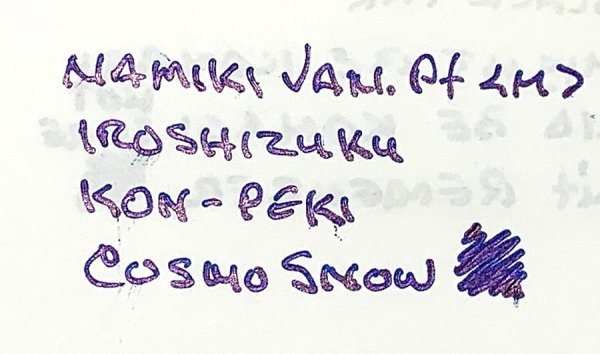 NAMIKI VAN. Pf <M>
IROSHIZUKU
KON-PEKI
COSMO SNOW